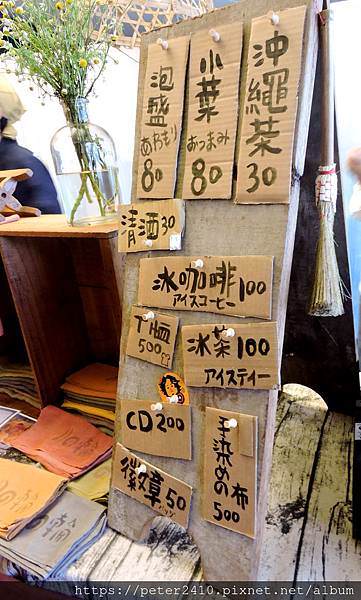 泡盛
あわもり
80
小菜
おつまみ
80
沖繩茶
30
清酒30
冰咖啡100
アイスコーヒー
T恤
500
冰茶100
アイスティー
CD200
手染めの布
500
徽章50
https://peter2410.pixnet.net/album